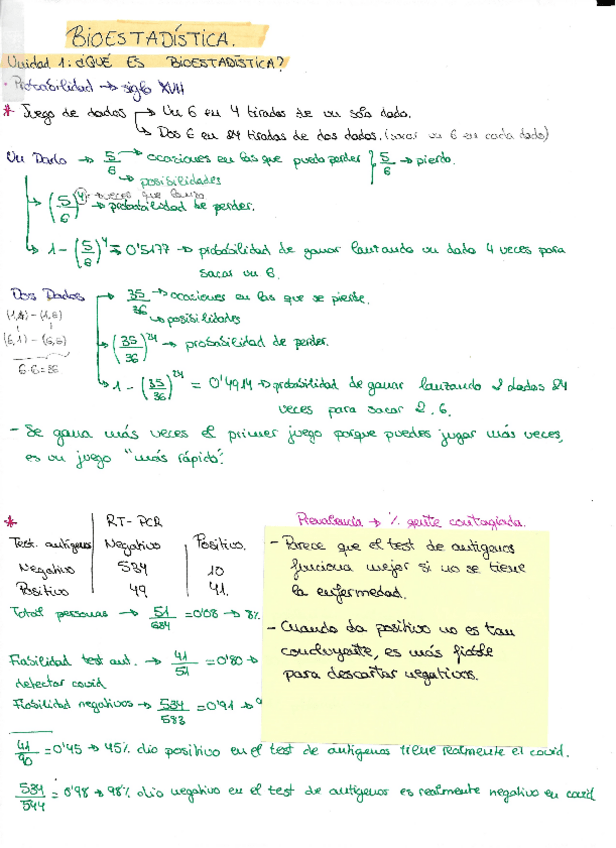 BIOESTADÍSTICA.
Unidad 1: ¿QUÉ ES BIOESTADÍSTICA?
· Probabilidad → siglo XVII
* Juego de dados → Un 6 en 4 tiradas de un solo dado.
↳ Dos 6 en 24 tiradas de dos dados. (sacar un 6 en cada dado)
Un Dado → 5/6 → ocasiones en las que puedo perder } 5/6 → pierdo.
↳ posibilidades
(5/6)^4 → veces que lanzo
→ probabilidad de perder.
1 - (5/6)^4 = 0'5177 → probabilidad de ganar lanzando un dado 4 veces para
sacar un 6.
Dos Dados → 35/36 → ocasiones en las que se pierde.
↳ posibilidades
(1,1) - (1,6)
(6,1) - (6,6)
6·6=36
(35/36)^24 → probabilidad de perder.
1 - (35/36)^24 = 0'4914 → probabilidad de ganar lanzando 2 dados 24
veces para sacar 2, 6.
- Se gana más veces el primer juego porque puedes jugar más veces,
es un juego "más rápido".
* RT-PCR
Prevalencia → % gente contagiada.
Test antígenos Negativo Positivo.
Negativo 534 10
Positivo 49 41.
Total personas → 51/634 = 0'08 → 8%
Fiabilidad test ant. → 41/51 = 0'80 →
detectar covid
Fiabilidad negativos → 534/583 = 0'91 →
- Parece que el test de antígenos
funciona mejor si no se tiene
la enfermedad.
- Cuando da positivo no es tan
concluyente, es más fiable
para descartar negativos.
41/90 = 0'45 → 45% dio positivo en el test de antígenos tiene realmente el covid.
534/544 = 0'98 → 98% dio negativo en el test de antígenos es realmente negativo en covid